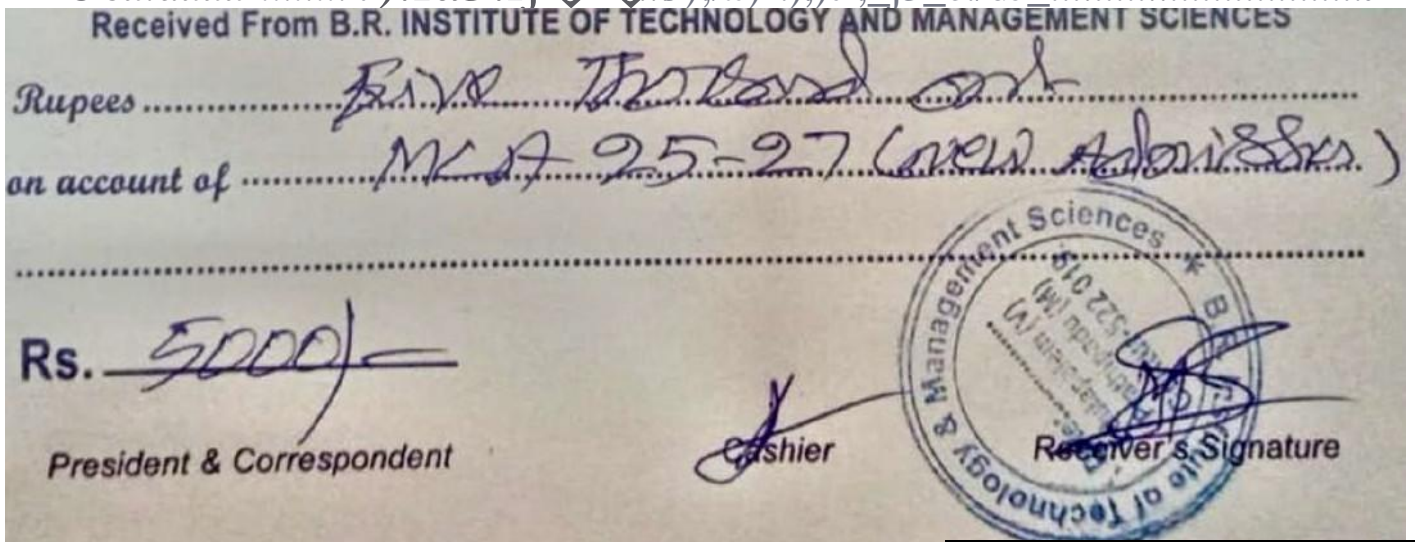 Received From B.R. INSTITUTE OF TECHNOLOGY AND MANAGEMENT SCIENCES
Rupees Five Thousand only
on account of MCA 25-27 (new Admissions)
Rs. 5000/-
President & Correspondent
Cashier
Receiver's Signature
Institute of Technology & Management Sciences * B.R.
(V)
(M)
-522 019